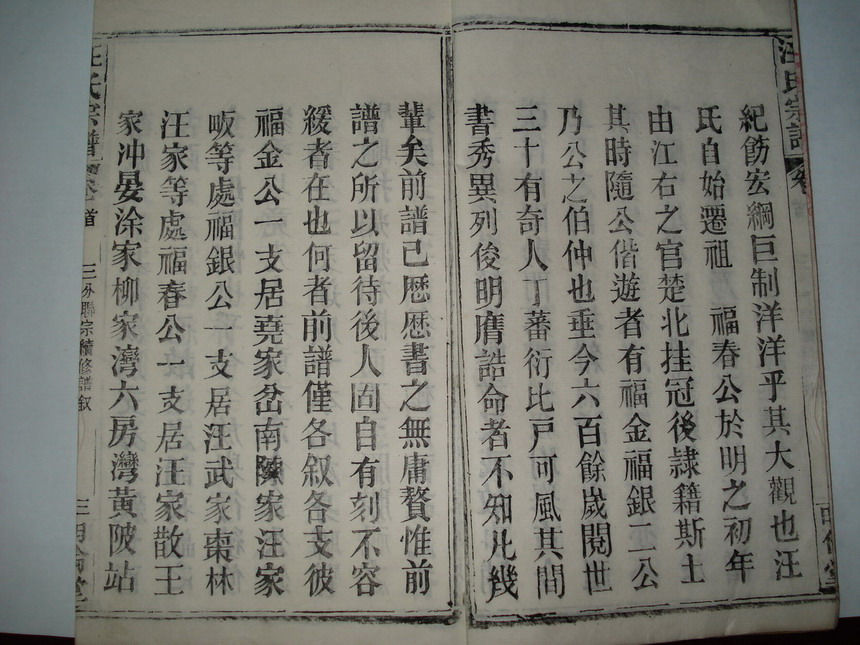 汪氏宗譜 卷
紀飭宏綱巨制洋洋乎其大觀也汪
氏自始遷祖　福春公於明之初年
由江右之官楚北挂冠後隷籍斯土
其時隨公偕遊者有福金福銀二公
乃公之伯仲也垂今六百餘歲閱世
三十有奇人丁蕃衍比戸可風其間
書秀異列俊明膺誥命者不知凡幾
輩矣前譜已歷歷書之無庸贅惟前
譜之所以留待後人固自有刻不容
緩者在也何者前譜僅各叙各支彼
福金公一支居堯家岔南陳家汪家
坂等處福銀公一支居汪武家棗林
汪家等處福春公一支居汪家散王
家沖晏涂家柳家灣六房灣黃陂站
汪氏宗譜 卷首 三分聯宗續修譜叙 三